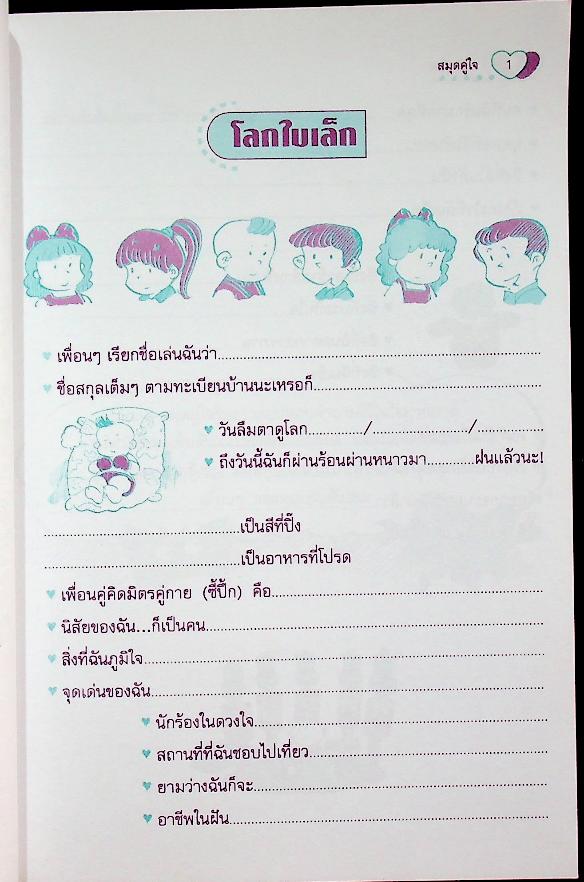 สมุดคู่ใจ 1
โลกใบเล็ก
เพื่อนๆ เรียกชื่อเล่นฉันว่า..........
ชื่อสกุลเต็มๆ ตามทะเบียนบ้านนะเหรอก็..........
วันลืมตาดูโลก............/..................../..............
ถึงวันนี้ฉันก็ผ่านร้อนผ่านหนาวมา..........ฝนแล้วนะ!
..........เป็นสีที่ปิ๊ง
..........เป็นอาหารที่โปรด
เพื่อนคู่คิดมิตรคู่กาย (ซี้ปึ้ก) คือ..........
นิสัยของฉัน...ก็เป็นคน..........
สิ่งที่ฉันภูมิใจ..........
จุดเด่นของฉัน..........
นักร้องในดวงใจ..........
สถานที่ที่ฉันชอบไปเที่ยว..........
ยามว่างฉันก็จะ..........
อาชีพในฝัน..........